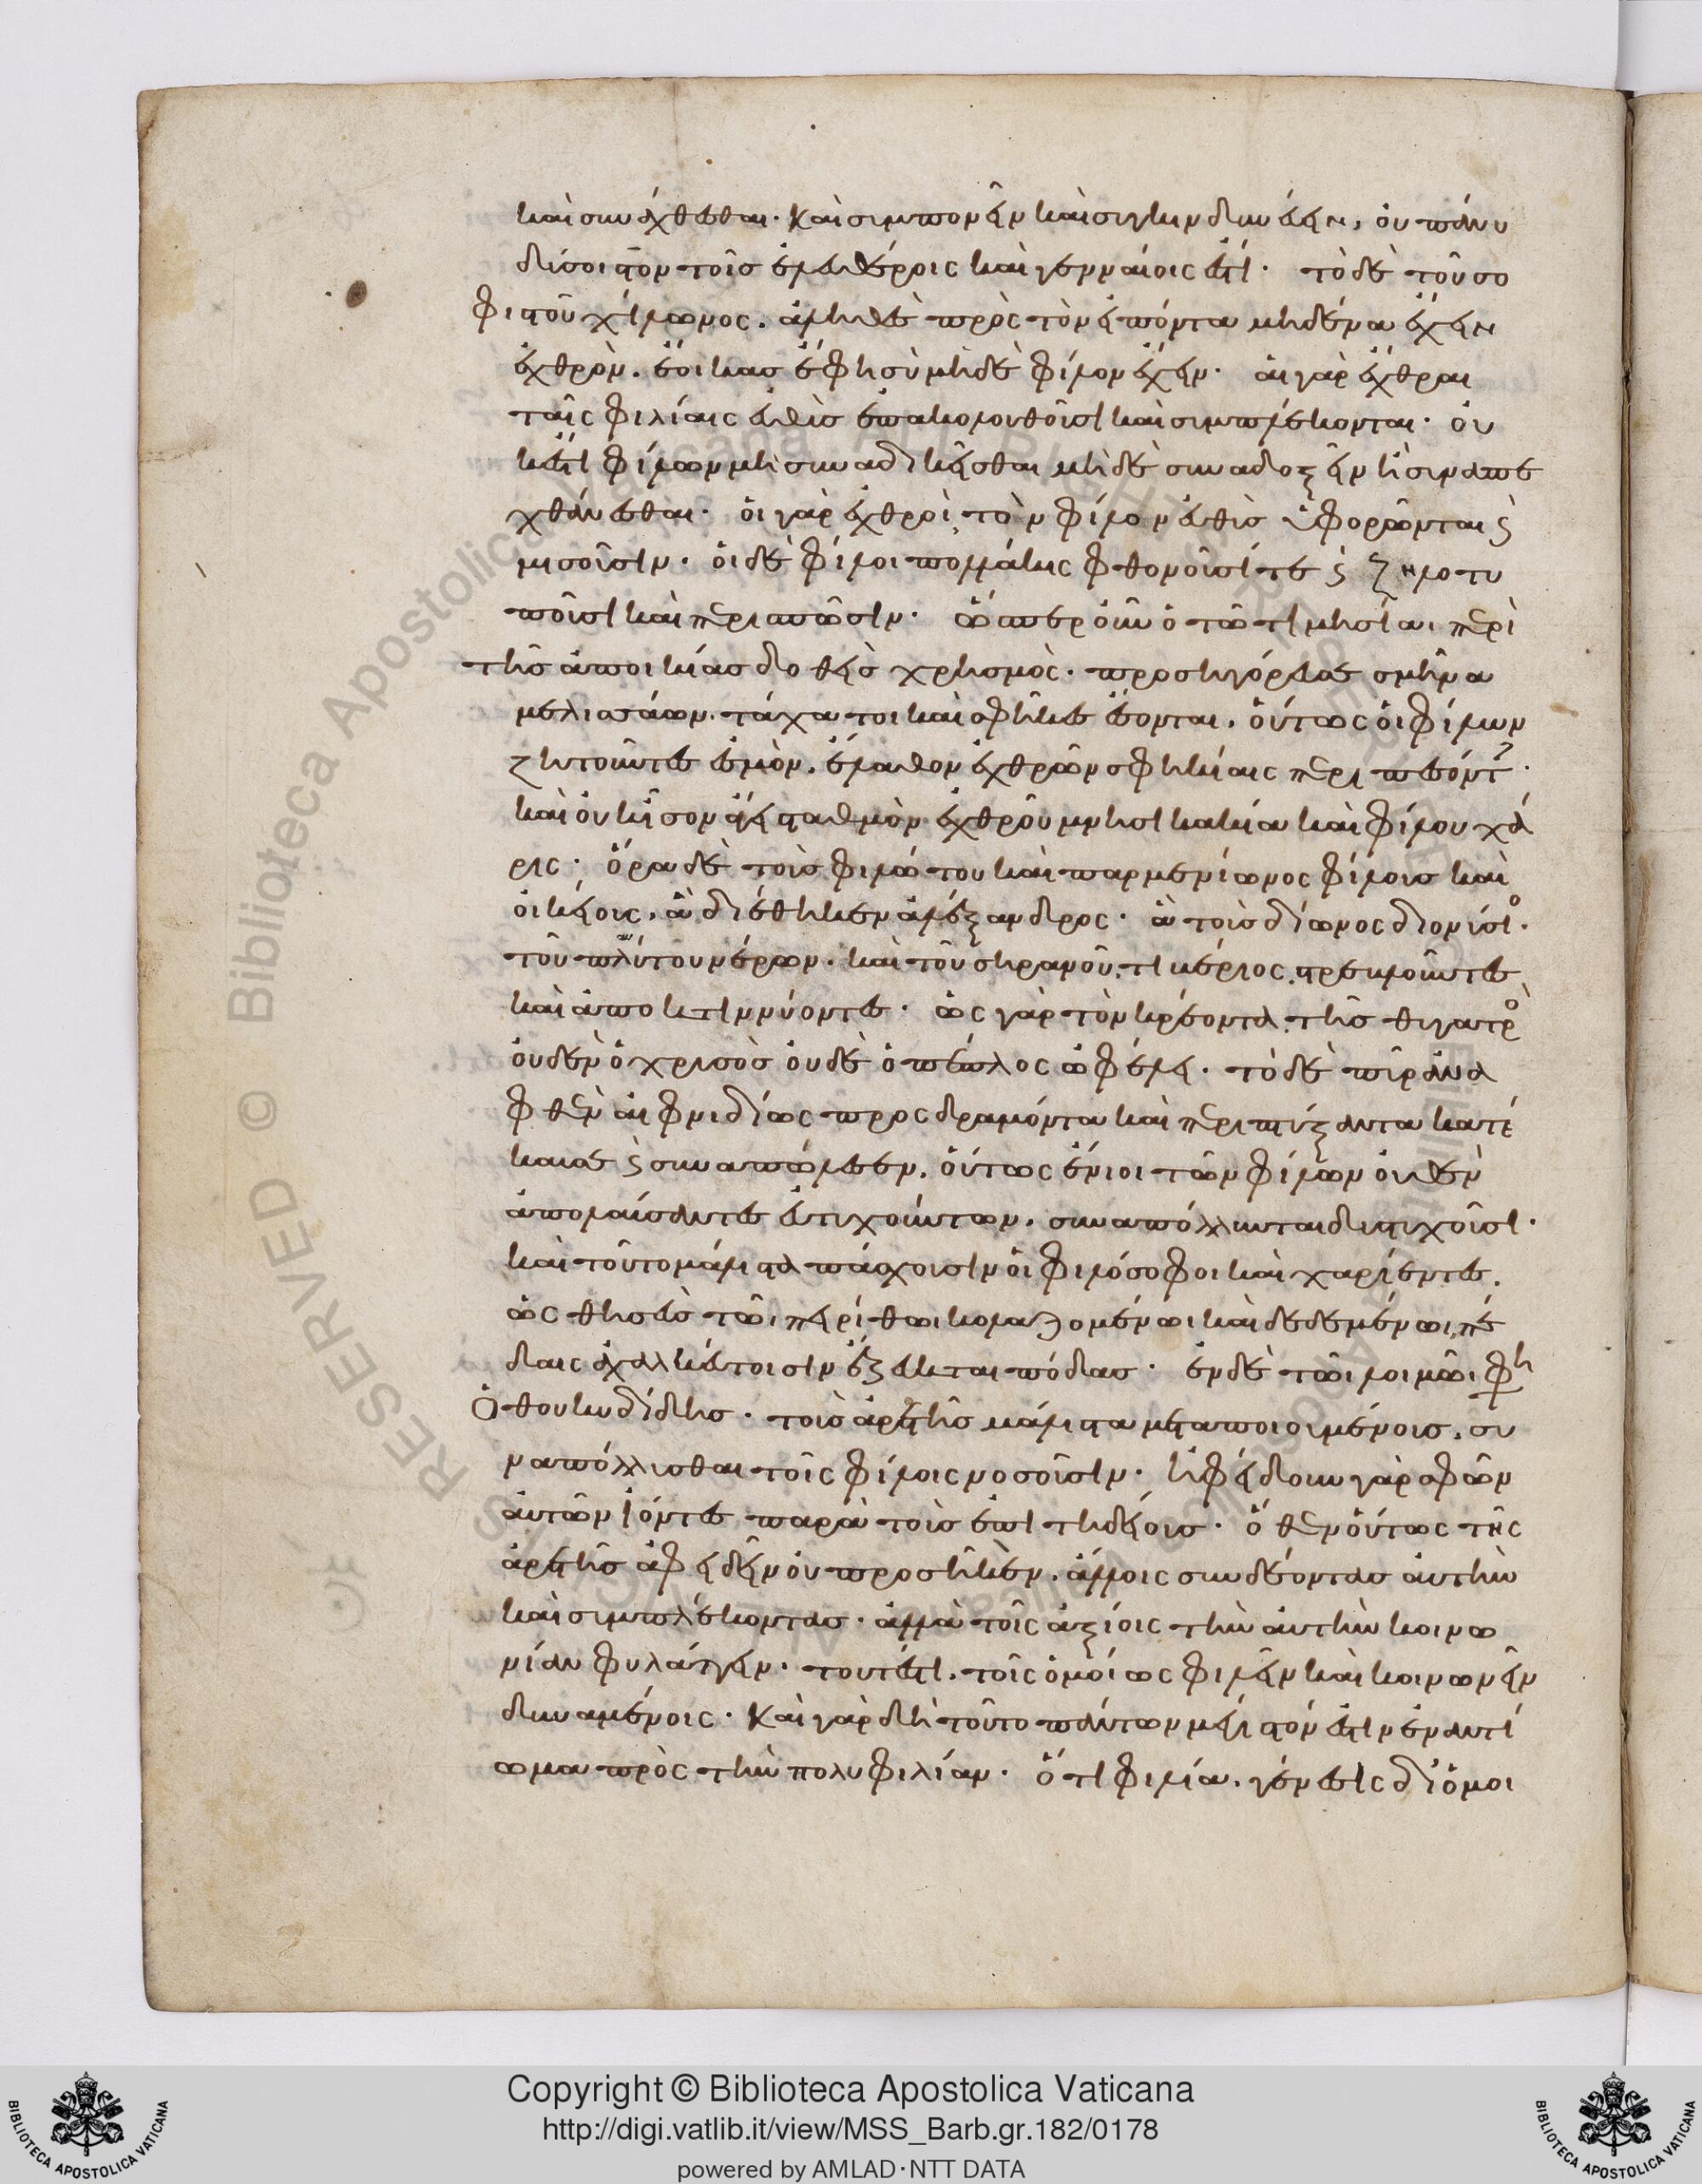 καὶ συνάχθεσθαι. καὶ συμπονεῖν καὶ συγκινδυνεύειν, οὐ πάνυ
δύσοιστον τοῖς ἐλευθέροις καὶ γενναίοις ἐστί. τὸ δὲ τοῦ σο
φοῦ χίλωνος. ἀληθὲς πρὸς τὸν εἰπόντα μηδένα ἔχειν
ἐχθρὸν. ἔοικας ἔφη σὺ μηδὲ φίλον ἔχειν. αἱ γὰρ ἔχθραι
ταῖς φιλίαις εὐθὺς ἐπακολουθοῦσι καὶ συμπλέκονται. οὐ
κ ἔστι φίλων μὴ συναδικεῖσθαι μηδὲ συναδοξεῖν ἢ συναπε
χθάνεσθαι. οἱ γὰρ ἐχθροὶ τὸν φίλον εὐθὺς ὑφορῶνται ϛ
μισοῦσιν. οἱ δὲ φίλοι πολλάκις φθονοῦσί τε ϛ ζηλοτυ
ποῦσι καὶ περισπῶσιν. ὥσπερ οὖν ὁ τῶ τιμησία περὶ
τῆς ἀποικίας δοθεὶς χρησμὸς. προσηγόρευσε σμῆνα
μελισσάων. τάχα τοι καὶ σφῆκες ἔσονται. οὕτως οἱ φίλων
ζητοῦντες ἑσμὸν. ἔλαθον ἐχθρῶν σφηκίαις περιπεσόντ.
καὶ οὐκ ἴσον ἄγει σταθμὸν ἐχθροῦ μνησικακία καὶ φίλου χά
ρις. ὅρα δὲ τοὺς φιλώτου καὶ παρμενίωνος φίλους καὶ
οἰκείους, ἃ διέθηκεν ἀλέξανδρος. ἃ τοὺς δίωνος διονύσιο.
τοὺς πλαύτου νέρων. καὶ τοὺς σηιανοῦ. τιβέριος. στρεβλοῦντες
καὶ ἀποκτιννύοντες. ὡς γὰρ τὸν κρέοντα τῆς θυγατρὸ
οὐδὲν ὁ χρυσὸς οὐδὲ ὁ πέπλος ὠφέλει. τὸ δὲ πῦρ ἀνα
φθὲν αἰφνιδίως προσδραμόντα καὶ περιπτύξαντα κατέ
καυσε ϛ συναπώλεσεν. οὕτως ἔνιοι τῶν φίλων οὐθὲν
ἀπολαύσαντες εὐτυχούντων. συναπόλλυνται δυστυχοῦσι.
καὶ τοῦτο μάλιστα πάσχουσιν οἱ φιλόσοφοι καὶ χαρίεντες.
ὡς θησεὺς τῶι πειρίθωι κολαζομένωι καὶ δεδεμένωι, πέ
δαις ἀχαλκεύτοισιν ἔζευκται πόδας. ἐν δὲ τῶι λοιμῶι φη
ὁ θουκυδίδης. τοὺς ἀρετῆς μάλιστα μεταποιουμένους. συ
ναπόλλυσθαι τοῖς φίλοις νοσοῦσιν. ἠφείδουν γὰρ σφῶν
αὐτῶν ἰόντες παρὰ τοὺς ἐπιτηδείους. ὅθεν οὕτως τῆς
ἀρετῆς ἀφειδεῖν οὐ προσῆκεν. ἄλλοις συνδέοντας αὐτὴν
καὶ συμπλέκοντας. ἀλλὰ τοῖς ἀξίοις τὴν αὐτὴν κοινω
νίαν φυλάττειν. τουτέστι. τοῖς ὁμοίως φιλεῖν καὶ κοινωνεῖν
δυναμένοις. καὶ γὰρ δὴ τοῦτο πάντων μέγιστόν ἐστιν ἐναντί
ωμα πρὸς τὴν πολυφιλίαν. ὅτι φιλία. γένεσις δι᾽ ὁμοι
Copyright © Biblioteca Apostolica Vaticana
http://digi.vatlib.it/view/MSS_Barb.gr.182/0178
powered by AMLAD·NTT DATA